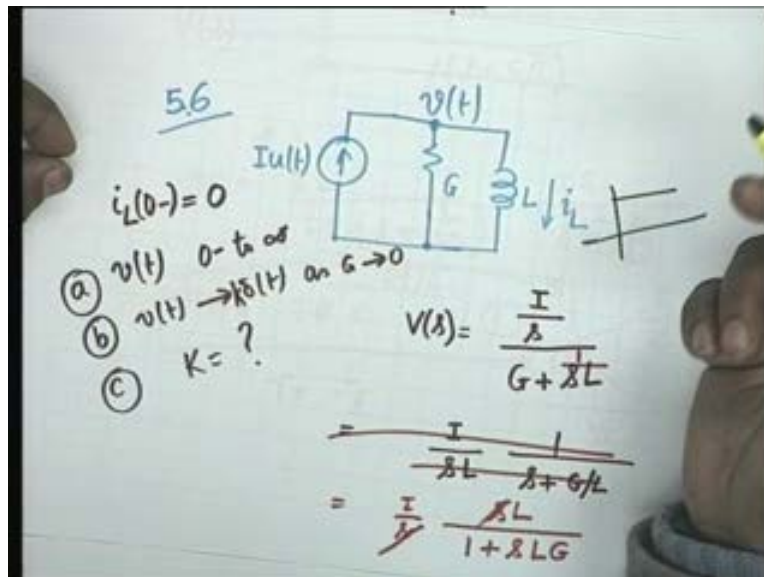 5.6
v(t)
Iu(t)
G
L
i_L
i_L(0-)=0
(a) v(t) 0- to ∞
(b) v(t) → kδ(t) as G→0
(c) K = ?
V(s) = (I/s) / (G + 1/(sL))
= I/(sL) 1/(s + G/L)
= I/s sL/(1 + sLG)